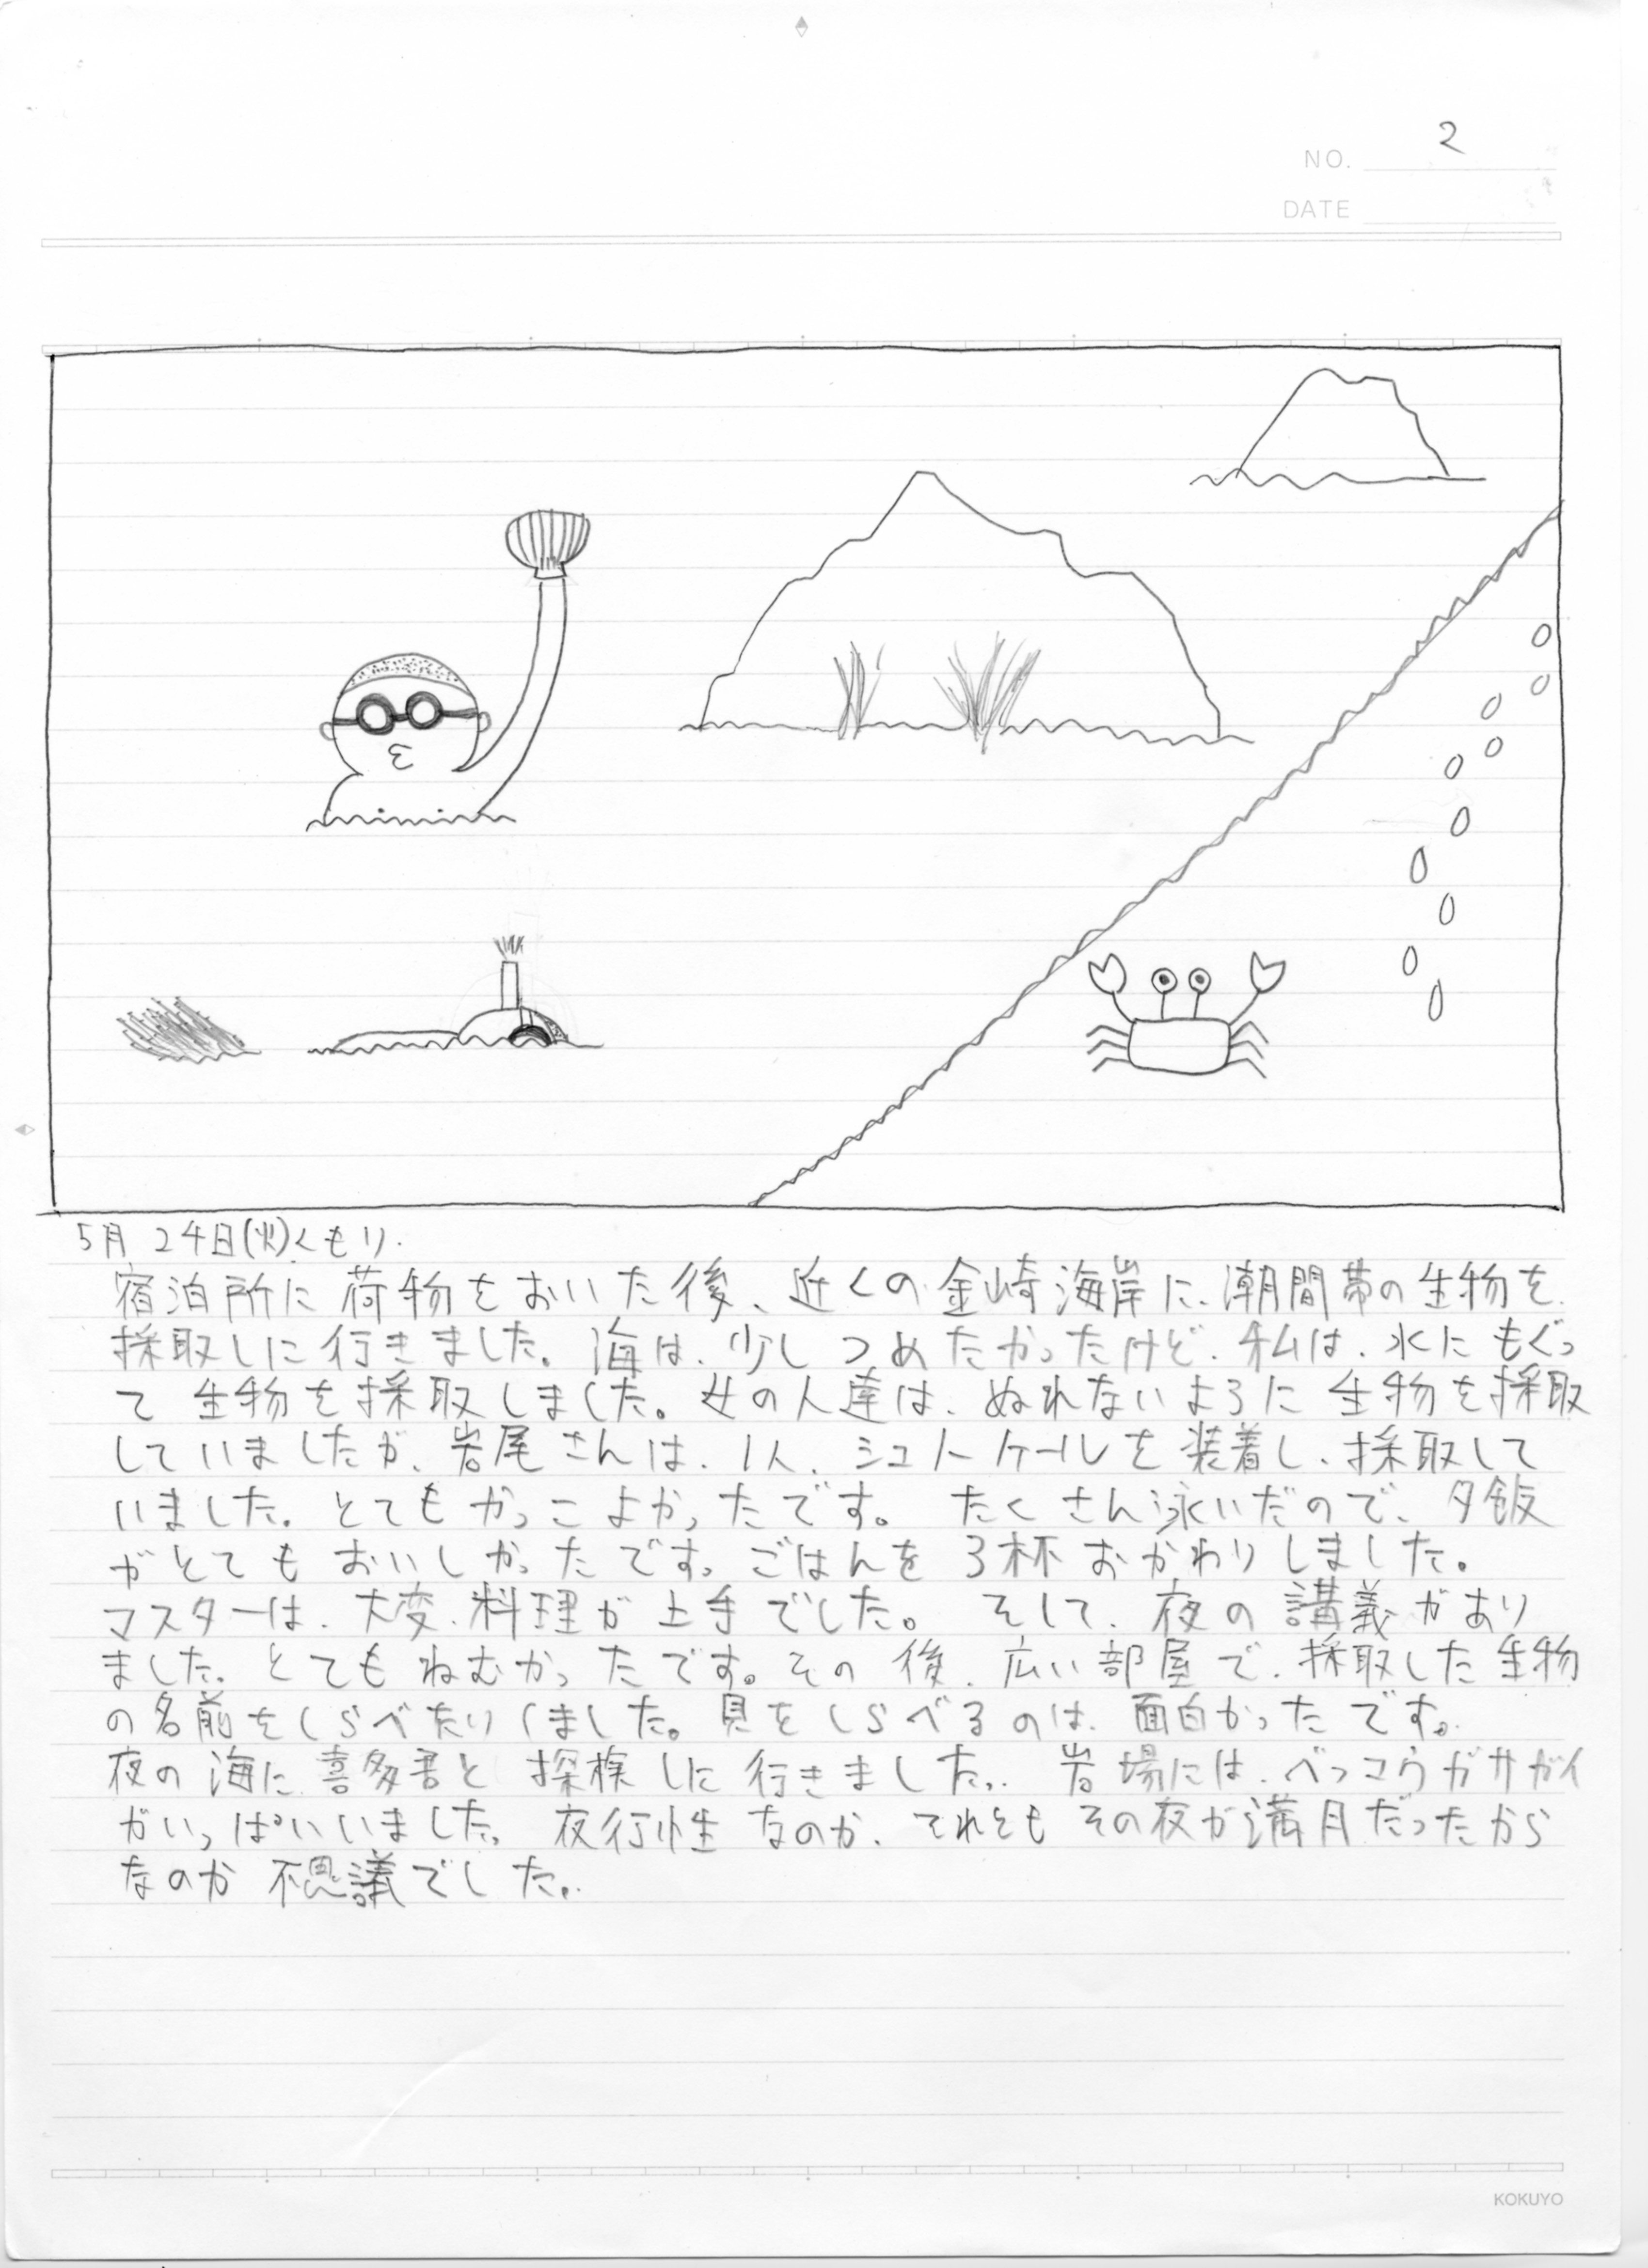 NO. 2
DATE
5月24日(火)くもり.
宿泊所に荷物をおいた後、近くの金崎海岸に、潮間帯の生物を
採取しに行きました。海は、少しつめたかったけど、私は、水にもぐっ
て生物を採取しました。女の人達は、ぬれないように生物を採取
していましたが、岩尾さんは、1人、シュノーケールを装着し、採取して
いました。とてもかっこよかったです。たくさん泳いだので、夕飯
がとてもおいしかったです。ごはんを3杯おかわりしました。
マスターは、大変、料理が上手でした。そして、夜の講義があり
ました。とてもねむかったです。その後、広い部屋で、採取した生物
の名前をしらべたりしました。貝をしらべるのは、面白かったです。
夜の海に喜多君と探検しに行きました。岩場には、ベッコウガサガイ
がいっぱいいました。夜行性なのか、それともその夜が満月だったから
なのか不思議でした。
KOKUYO